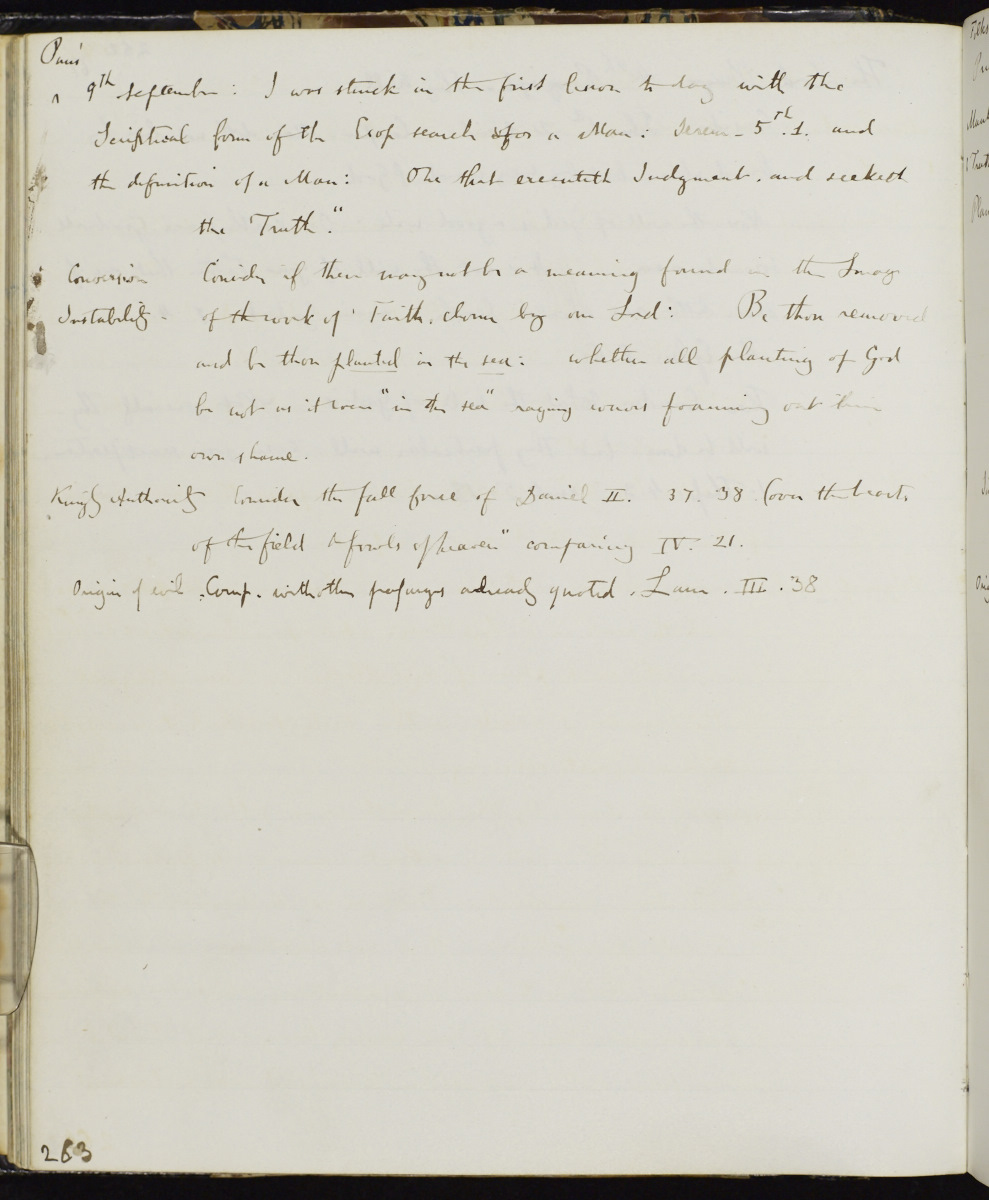 Paris
^ 9th September: I was struck in the first lesson to day with the
Scriptical form of the Esop search for a Man: Jerem - 5th. 1. and
the definition of a Man: One that executeth Judgment. and seeketh
the "Truth".
Conversion Consider if there may not be a meaning found in the Image
Instability - of the work of Faith, chosen by our Lord: Be thou removed
and be thou planted in the sea: whether all planting of God
be not as it were "in the sea" raging waves foaming out their
own shame.
Kingly Authority Consider the full force of Daniel II. 37. 38 (over the beasts
of the field & fowls of heaven" comparing IV. 21.
Origin of evil. Comp. with other passages already quoted. Lam. III. 38
263